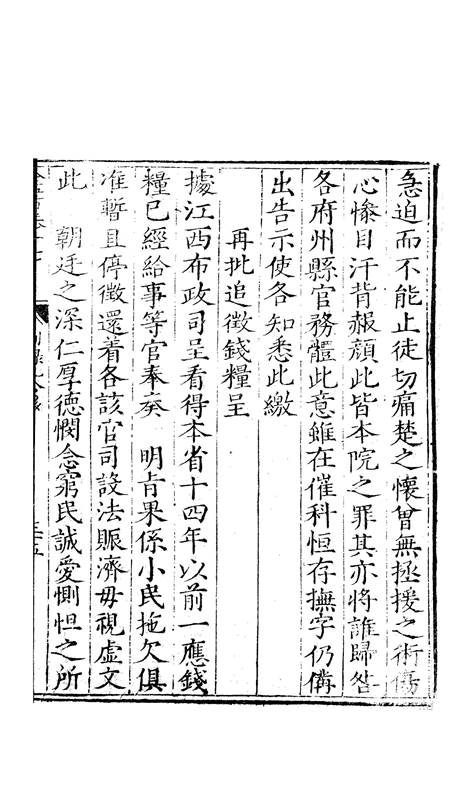 急迫而不能止徒切痛楚之懷曾無拯援之術傷
心慘目汗背赧顏此皆本院之罪其亦將誰歸咎
各府州縣官務體此意雖在催科恒存撫字仍備
出告示使各知悉此繳
再批追徵錢糧呈
據江西布政司呈看得本省十四年以前一應錢
糧已經給事等官奉奏 明旨果係小民拖欠俱
准暫且停徵還着各該官司設法賑濟毋視虛文
此 朝廷之深仁厚德憫念窮民誠愛惻怛之所